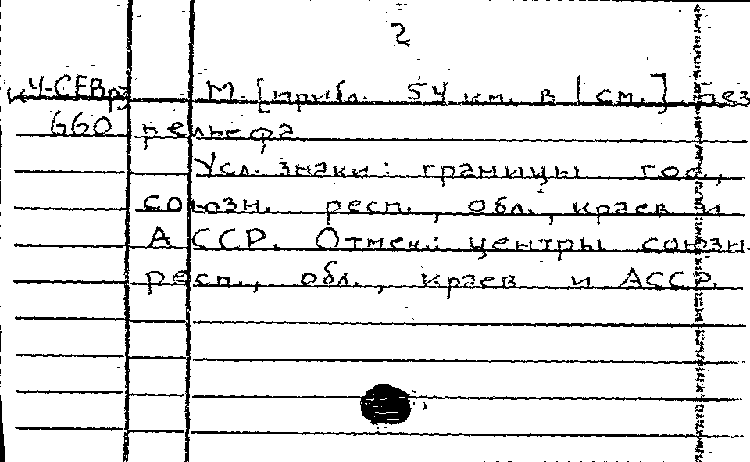 2
К4-СЕВр М. [прибл. 54 км. в 1 см.] Без
660 рельефа
Усл. знаки: границы гос.,
союзн. респ., обл., краев и
АССР. Отмеч.: центры союзн.
респ., обл., краев и АССР.